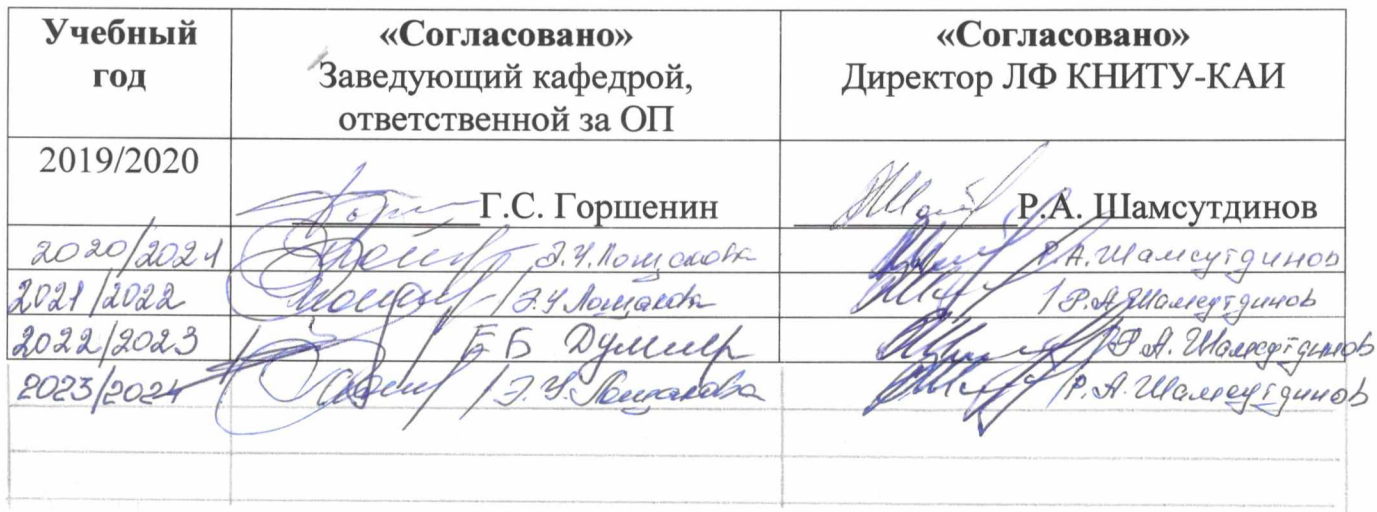 Учебный год
«Согласовано»
Заведующий кафедрой,
ответственной за ОП
«Согласовано»
Директор ЛФ КНИТУ-КАИ
2019/2020
Г.С. Горшенин
Р.А. Шамсутдинов
2020/2021 Э.У. Лощакова Р.А. Шамсутдинов
2021/2022 / Э.У Лощакова / Р.А. Шамсутдинов
2022/2023 / Б Б / Р.А. Шамсутдинов
2023/2024 / Э.У. Лощакова / Р.А. Шамсутдинов